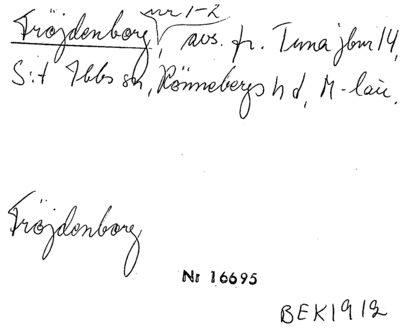 Fröjdenborg nr 1-2, avs. fr. Tuna jbnr 14,
S:t Ibbs sn, Rönnebergs hd, M-län.
Fröjdenborg
Nr 16695
BEK 1912